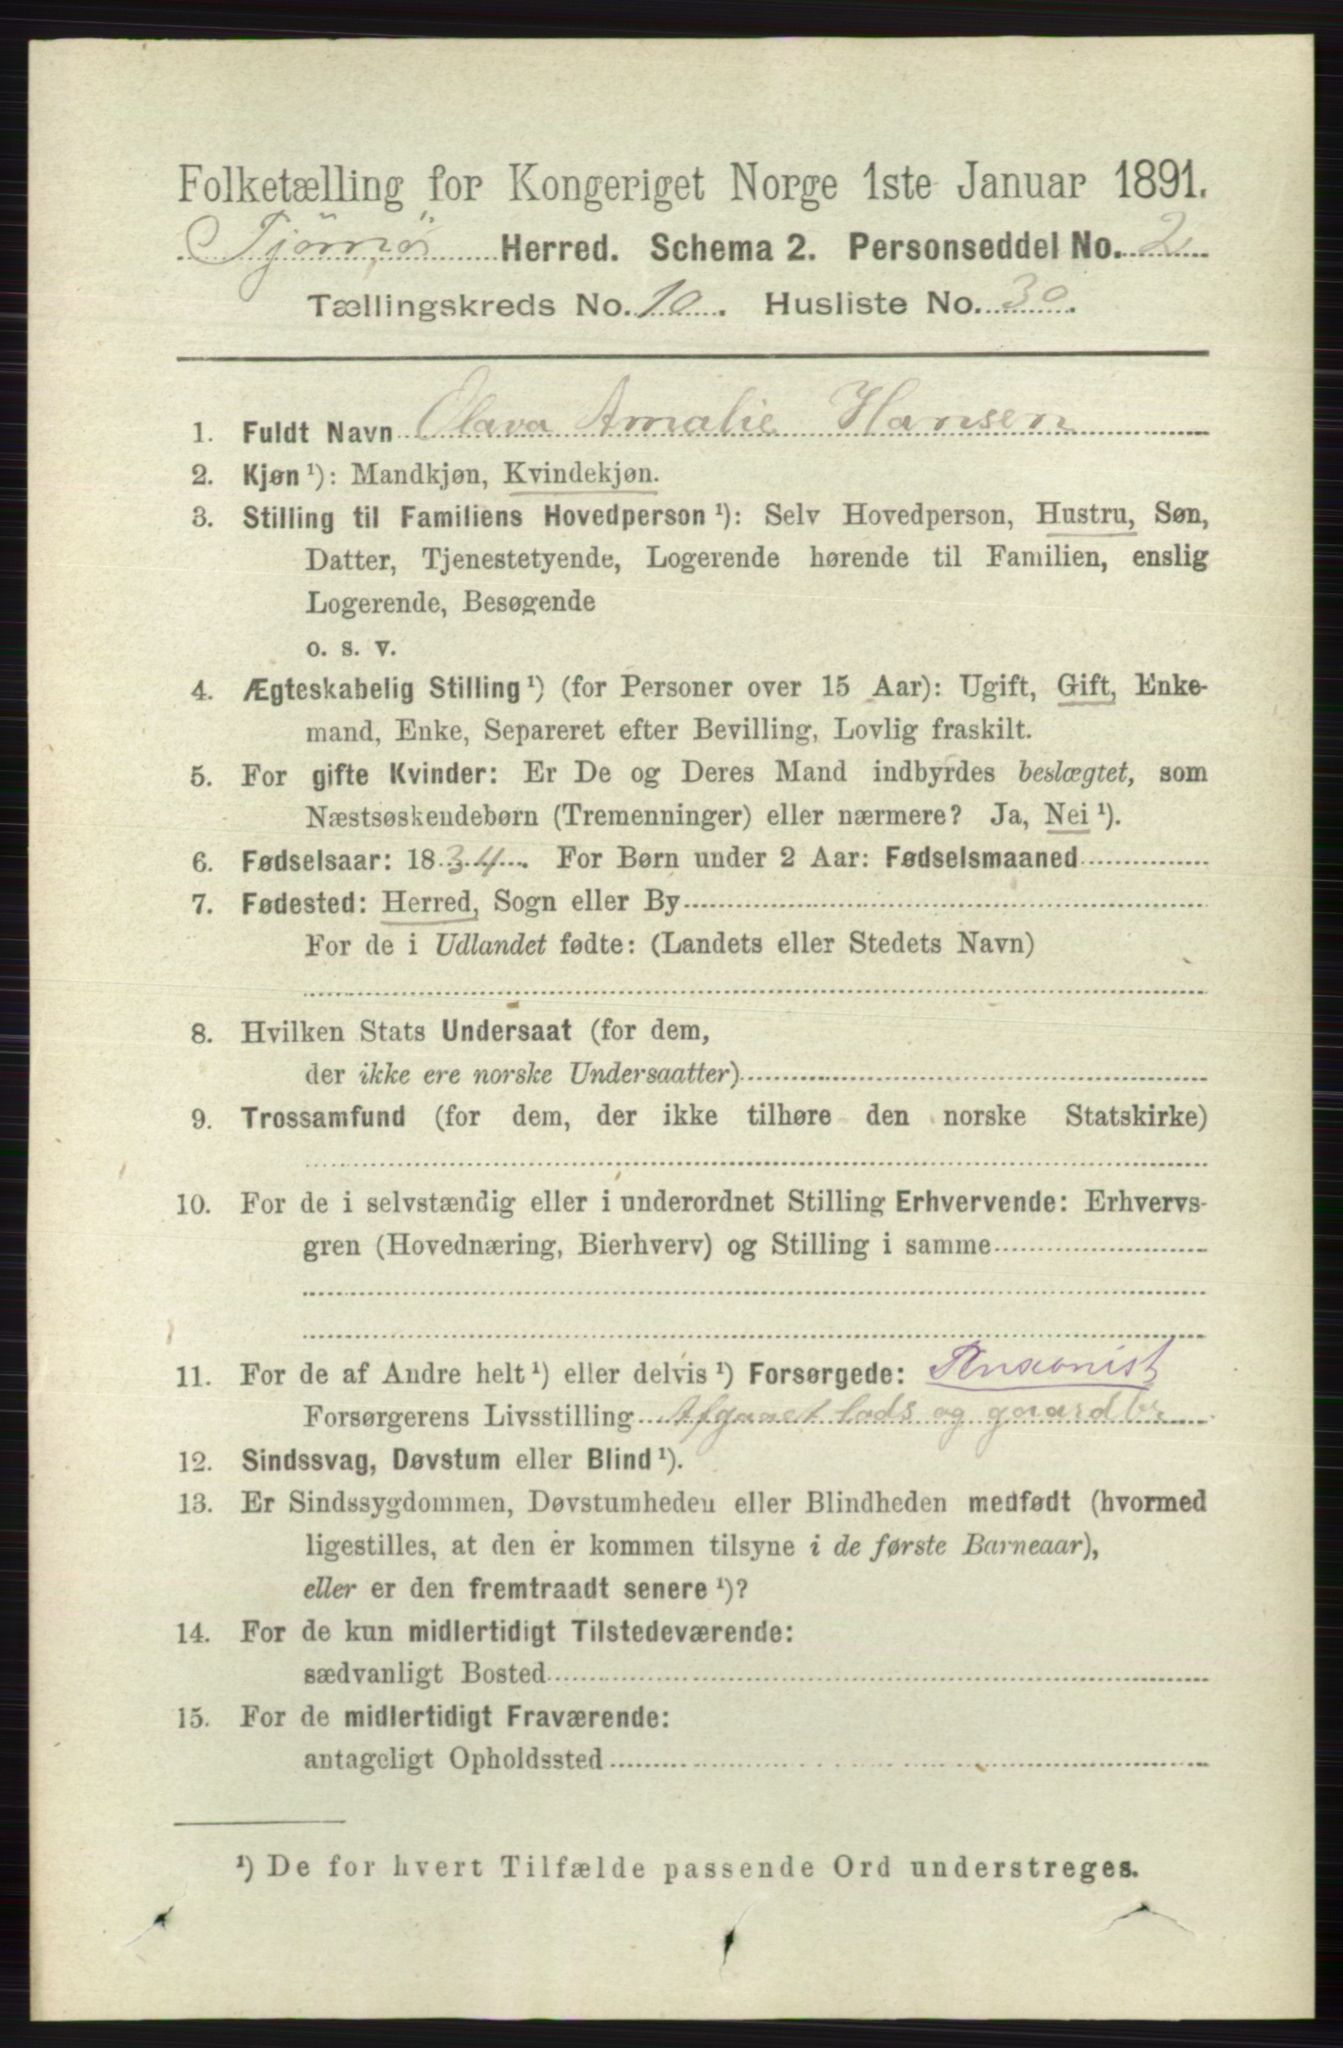 Folketælling for Kongeriget Norge 1ste Januar 1891.
Tjømø Herred. Schema 2. Personseddel No. 2
Tællingskreds No. 10. Husliste No. 30.
1. Fuldt Navn Olava Amalie Hansen
2. Kjøn ¹): Mandkjøn, Kvindekjøn.
3. Stilling til Familiens Hovedperson ¹): Selv Hovedperson, Hustru, Søn,
Datter, Tjenestetyende, Logerende hørende til Familien, enslig
Logerende, Besøgende
o. s. v.
4. Ægteskabelig Stilling ¹) (for Personer over 15 Aar): Ugift, Gift, Enke-
mand, Enke, Separeret efter Bevilling, Lovlig fraskilt.
5. For gifte Kvinder: Er De og Deres Mand indbyrdes beslægtet, som
Næstsøskendebørn (Tremenninger) eller nærmere? Ja, Nei ¹).
6. Fødselsaar: 1834. For Børn under 2 Aar: Fødselsmaaned
7. Fødested: Herred, Sogn eller By
For de i Udlandet fødte: (Landets eller Stedets Navn)
8. Hvilken Stats Undersaat (for dem,
der ikke ere norske Undersaatter)
9. Trossamfund (for dem, der ikke tilhøre den norske Statskirke)
10. For de i selvstændig eller i underordnet Stilling Erhvervende: Erhvervs-
gren (Hovednæring, Bierhverv) og Stilling i samme
11. For de af Andre helt ¹) eller delvis ¹) Forsørgede: Penxonist
Forsørgerens Livsstilling Afgaaet lods og gaardbr
12. Sindssvag, Døvstum eller Blind ¹).
13. Er Sindssygdommen, Døvstumheden eller Blindheden medfødt (hvormed
ligestilles, at den er kommen tilsyne i de første Barneaar),
eller er den fremtraadt senere ¹)?
14. For de kun midlertidigt Tilstedeværende:
sædvanligt Bosted
15. For de midlertidigt Fraværende:
antageligt Opholdssted
¹) De for hvert Tilfælde passende Ord understreges.